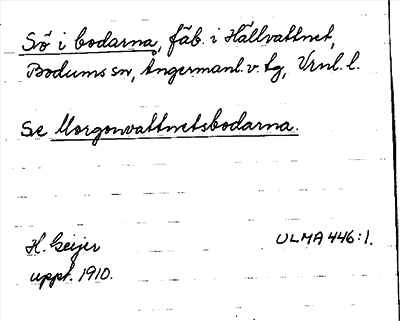 Sö i bodarna, fäb. i Hällvattnet,
Bodums sn, Ångermanl. v. tg, Vrnl. l.
Se Morgonvattnetsbodarna.
H. Geijer ULMA 446:1.
uppt. 1910.